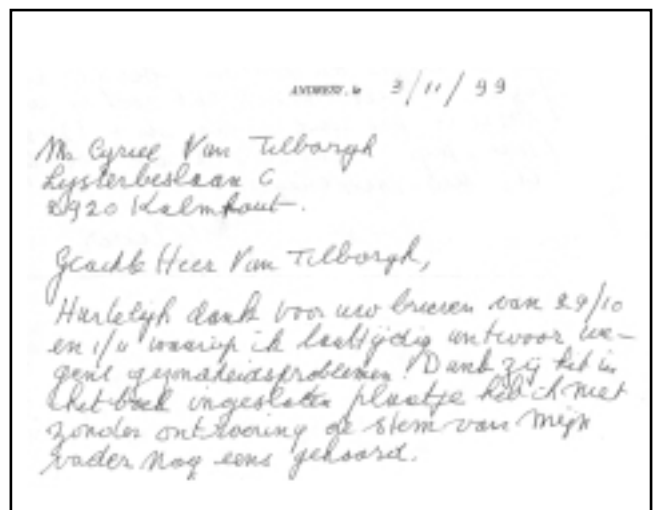 ANDWERP, le 3/11/99
Mr Cyriel Van Tilborgh
Lijsterbeslaan 6
2920 Kalmhout.
Geachte Heer Van Tilborgh,
Hartelijk dank voor uw brieven van 29/10
en 1/11 waarop ik laattijdig antwoor we-
gens gezondheidsproblemen! Dank zij het in
het boek ingesloten plaatje heb ik niet
zonder ontroering de stem van mijn
vader nog eens gehoord.